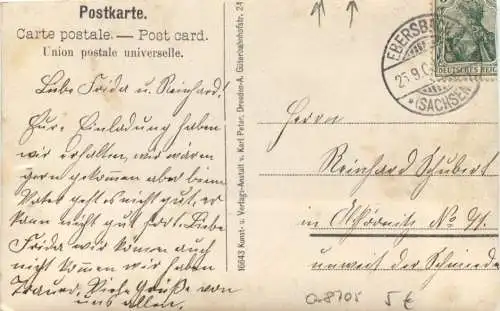 Postkarte.
Carte postale. — Post card.
Union postale universelle.
Liebe Frida u. Reinhard!
Eure Einladung haben
wir erhalten, wir wären
gern gekommen aber beim
Vater geht es nicht gut, er
kann nicht gut fort. Liebe
Frida wir können auch
nicht kommen wir haben
Trauer. Viele Grüße von
uns allen.
16643 Kunst- u. Verlags-Anstalt v. Karl Peter, Dresden-A. Güterbahnhofstr. 24
EBERSBACH
25.9.0
*(SACHSEN
DEUTSCHES REICH
Herrn
Reinhard Schubert
in No 91.
unweit der Schmiede
a8705 5 €